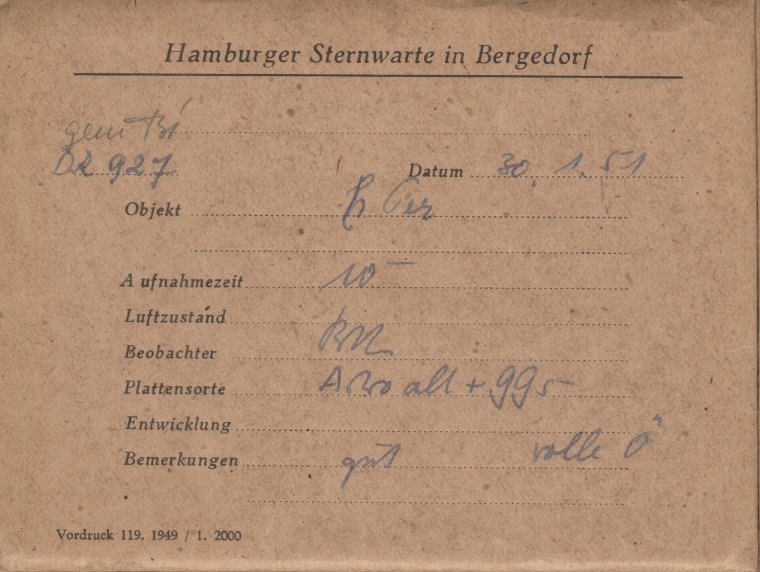 Hamburger Sternwarte in Bergedorf
gem
927 Datum 30. 1. 51
Objekt h Per
Aufnahmezeit 10
Luftzustand
Beobachter
Plattensorte alt + 99
Entwicklung
Bemerkungen gut volle Ö
Vordruck 119. 1949 / 1. 2000